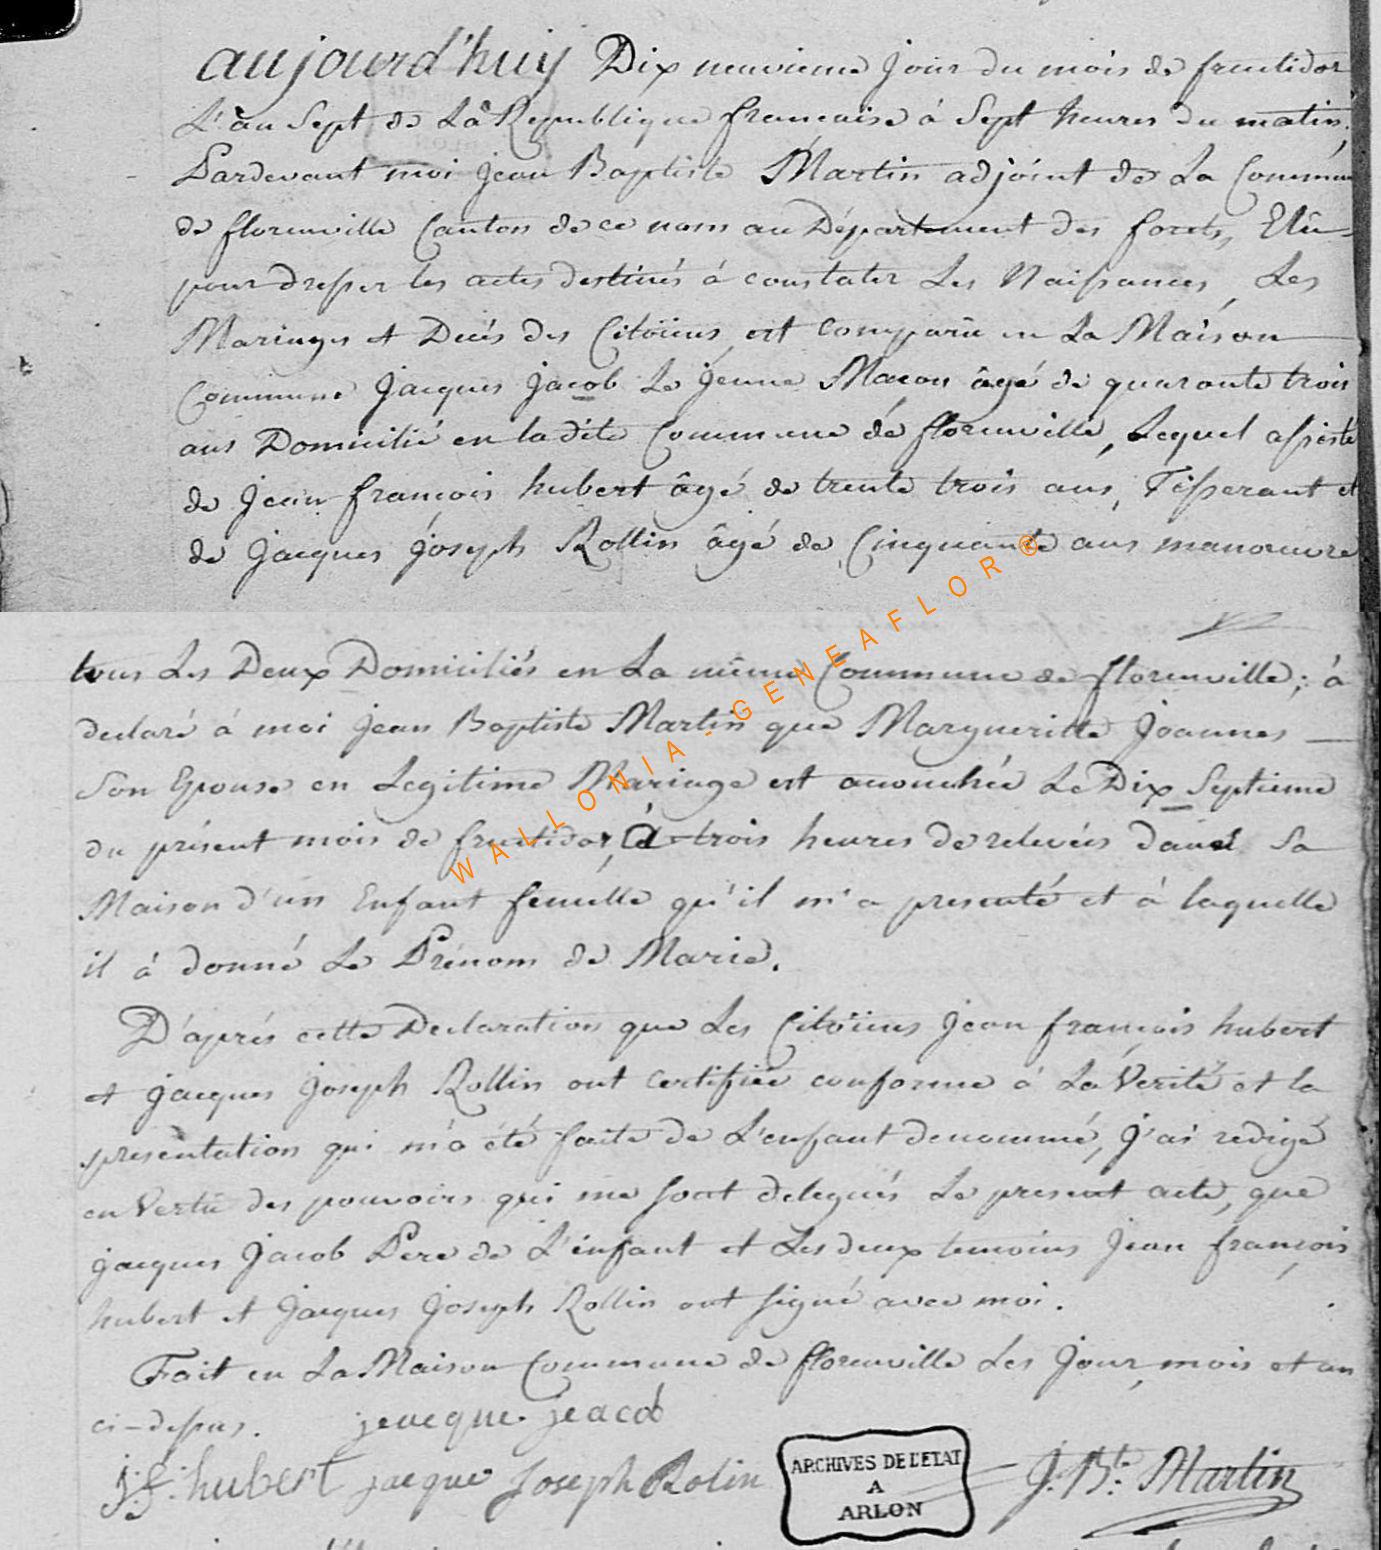 aujourd'huy Dix neuvieme jour du mois de fructidor
L'an Sept de La Republique francaise à Sept heures du matin,
Pardevant moi jean Baptiste Martin adjoint de La Commune
de florenville Canton de ce nom au Département des forets, Elû
pour dresser les actes destinés à constater Les Naissances, Les
Mariages et Decés des Citoïens, est comparû en La Maison
Commune jacques jacob Le jeune Macon âgé de quarante trois
ans Domicilié en ladite Commune de florenville, Lequel assisté
de jean françois hubert âgé de trente trois ans, Tisserant et
de jacques joseph Rollin âgé de Cinquante ans manoeuvre
tous Les Deux Domiciliés en La même Commune de florenville; à
declaré à moi jean Baptiste Martin que Marguerite Joannes
Son Epouse en Legitime Mariage est accouchée Le Dix Septieme
du présent mois de fructidor, à trois heures de relevées dans Sa
Maison d'un Enfant femelle qu'il m'a presenté et à laquelle
il à donné Le Prénom de Marie.
D'aprés cette Declaration que Les Citoïens jean françois hubert
et jacques joseph Rollin ont certifiée conforme à La Verité et la
presentation qui m'a été faite de L'enfant denommé, j'ai redigé
en Vertu des pouvoirs qui me sont delegués Le present acte, que
jacques jacob Pere de L'enfant et Les deux temoins jean françois
hubert et jacques joseph Rollin ont signé avec moi.
Fait en La Maison Commune de florenville Les jour, mois et an
ci-dessus. jeacque jeacob
j: f: hubert jacque joseph Rolin J. Bte Martin
ARCHIVES DE L'ETAT
A
ARLON
WALLONIA - GENEAFLOR ®